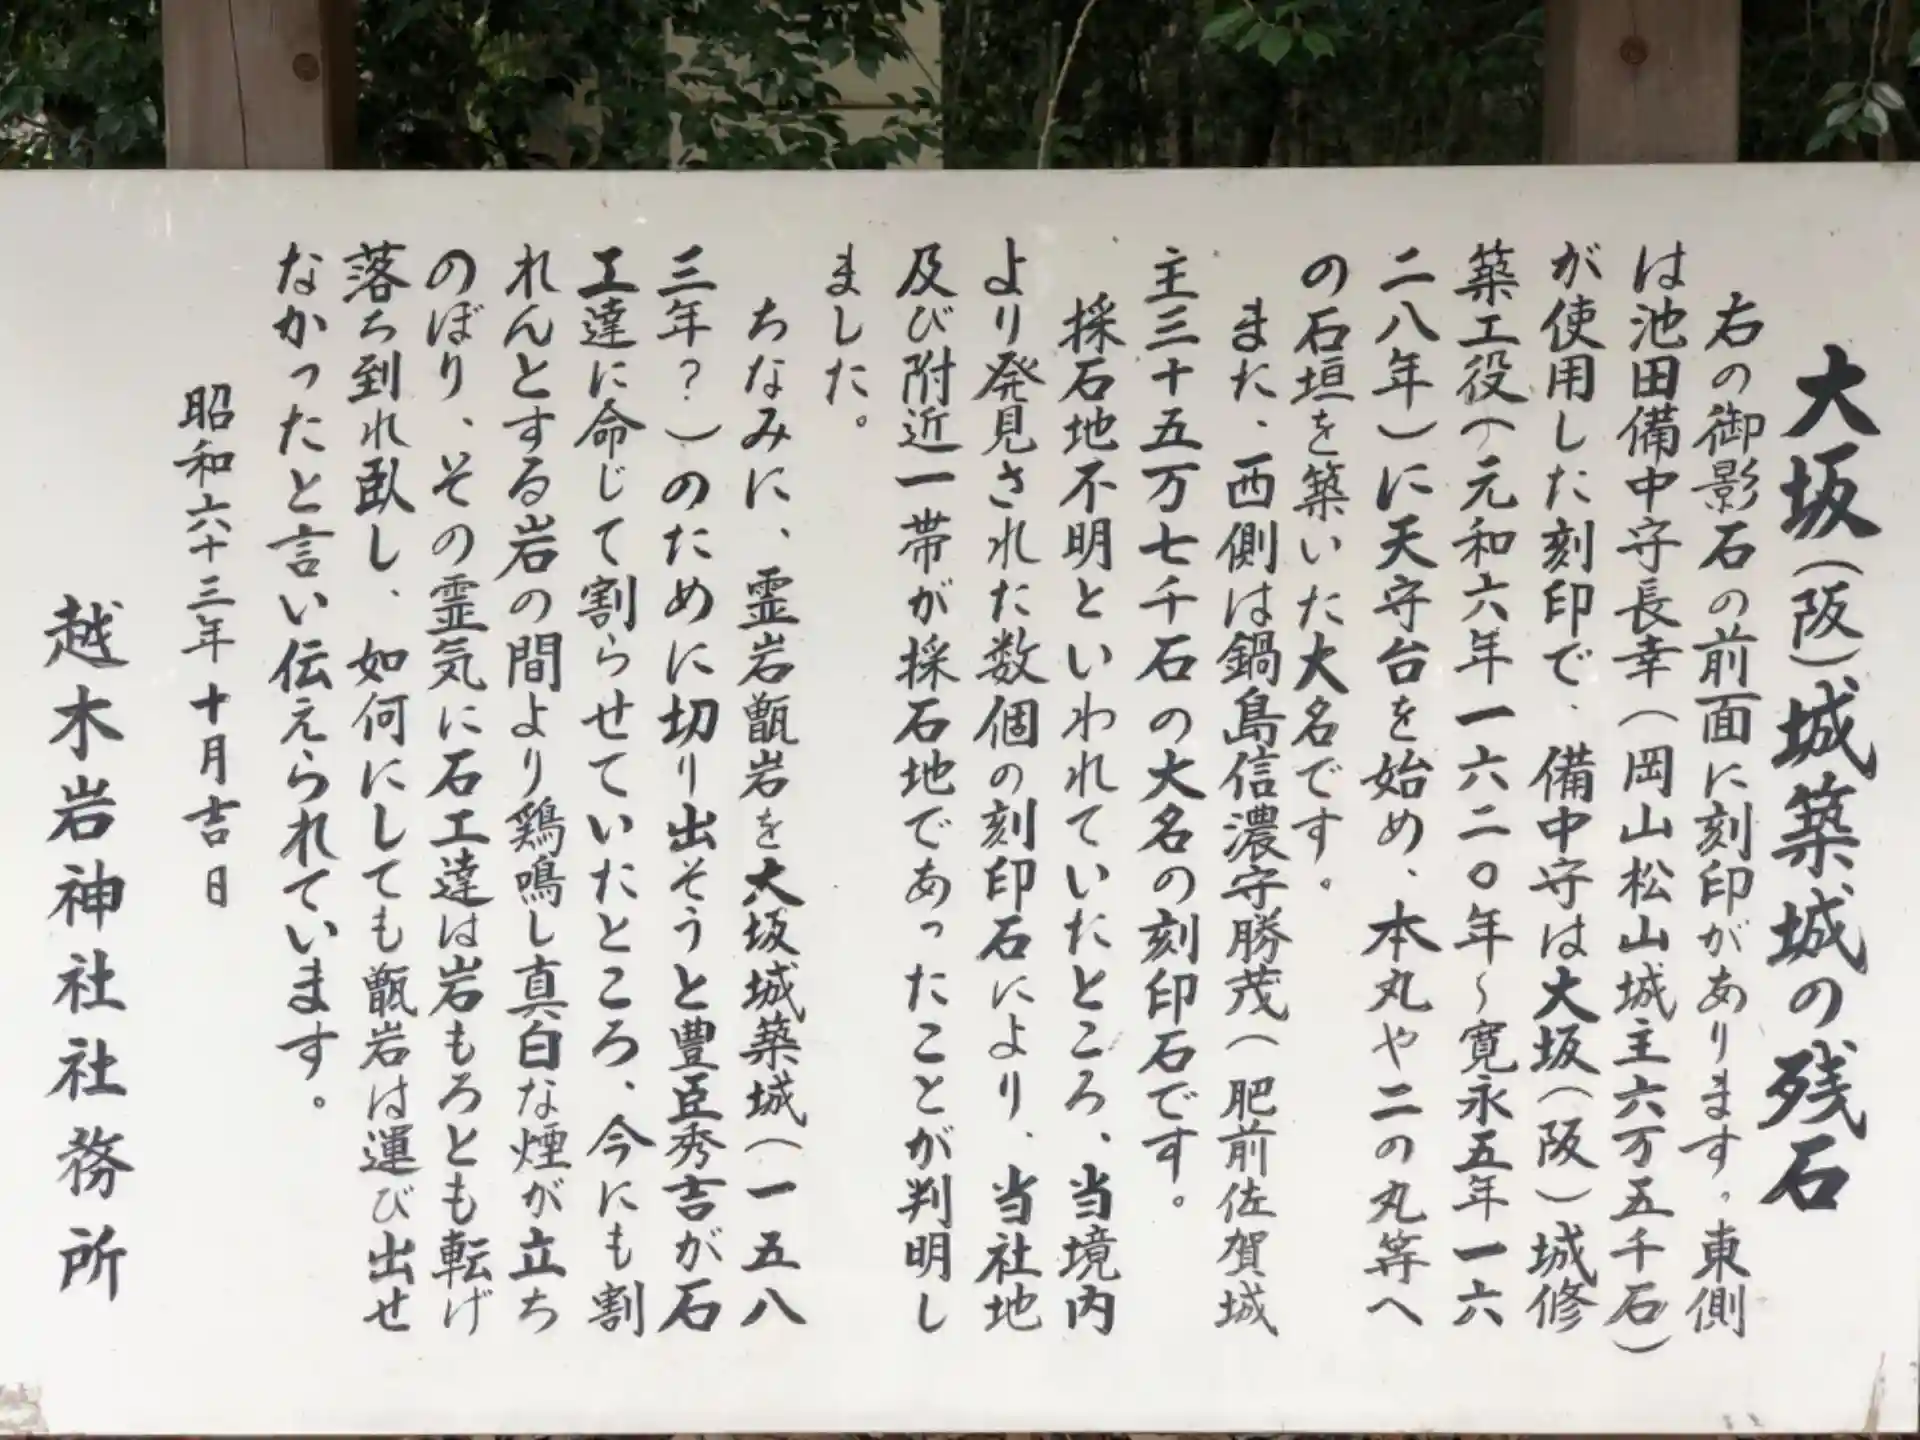 大坂(阪)城築城の残石
右の御影石の前面に刻印があります。東側
は池田備中守長幸(岡山松山城主六万五千石)
が使用した刻印で、備中守は大坂(阪)城修
築工役(元和六年一六二〇年~寛永五年一六
二八年)に天守台を始め、本丸や二の丸等へ
の石垣を築いた大名です。
また、西側は鍋島信濃守勝茂(肥前佐賀城
主三十五万七千石の大名の刻印石です。
採石地不明といわれていたところ、当境内
より発見された数個の刻印石により、当社地
及び附近一帯が採石地であったことが判明し
ました。
ちなみに、霊岩甑岩を大坂城築城(一五八
三年?)のために切り出そうと豊臣秀吉が石
工達に命じて割らせていたところ、今にも割
れんとする岩の間より鶏鳴し真白な煙が立ち
のぼり、その霊気に石工達は岩もろとも転げ
落ち到れ臥し、如何にしても甑岩は運び出せ
なかったと言い伝えられています。
昭和六十三年十月吉日
越木岩神社社務所